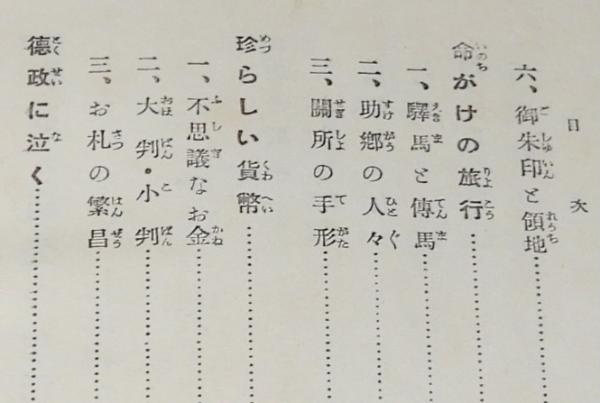 目次
六、御朱印と領地
命がけの旅行
一、驛馬と傳馬
二、助鄕の人々
三、關所の手形
珍らしい貨幣
一、不思議なお金
二、大判・小判
三、お札の繁昌
德政に泣く